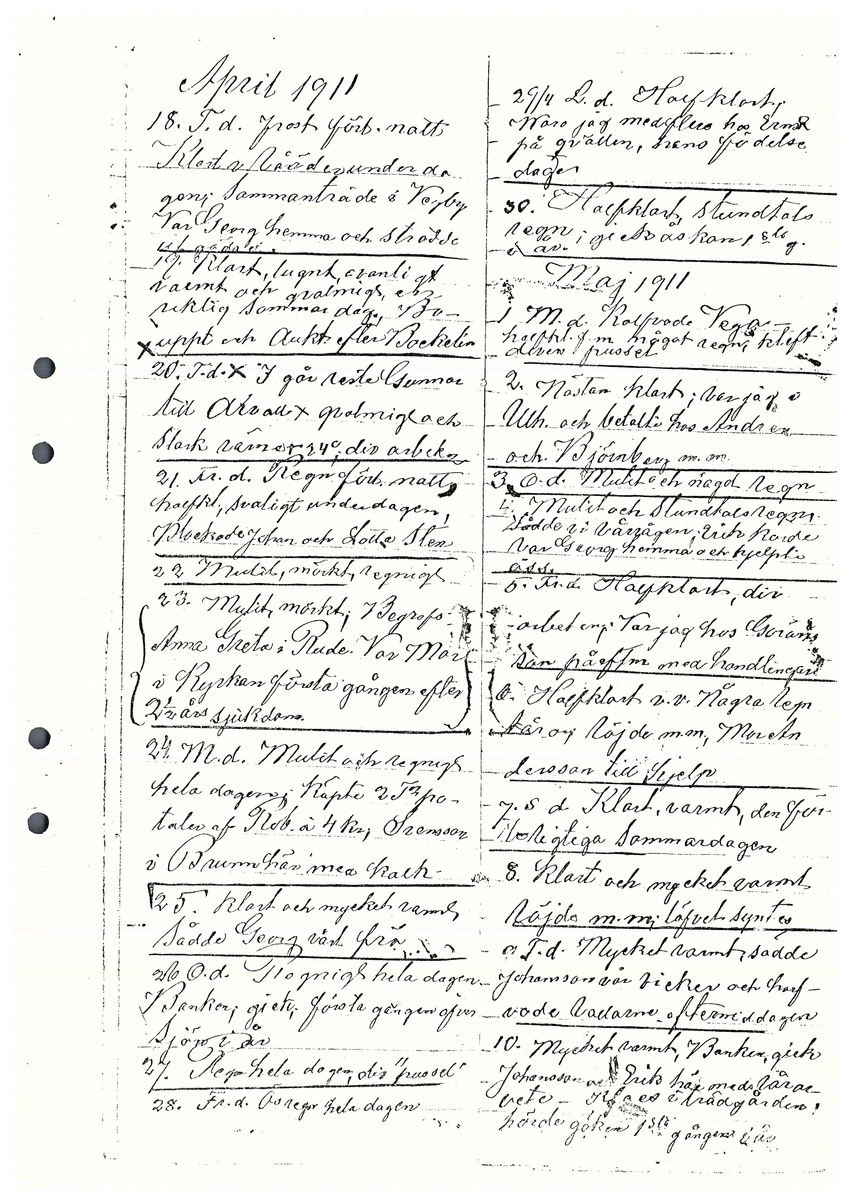 April 1911
18. T. d. frost förb. natt
Klart v. under da
gen; Sammanträde i Vegby
Var Georg hemma och strödde
19. Klart, lugnt, ovanligt
varmt och qvalmigt, en
riktig sommardag, Bo-
uppt och Aukt. efter Boekelin
20. T.d. X I går reste Gunnar
till X qvalmigt och
stark värme 24°, div arbeten
21. Fr. d. Regn förb. natt,
halfkl. svaligt under dagen,
Plockade Johan och Lotta Sten
22 Mulit, mörkt, regnigt
23. Mulit, mörkt; Begrofs
Anna Greta i Rude. Var Mor
i Kyrkan första gången efter
2½ års sjukdom.
24. M.d. Mulit och regnigt
hela dagen; köpte 2 po-
tater af Rob. à 4 kr; Svensson
i Brunn här med kalk.
25. Klart och mycket varmt
Sådde Georg vårt frö
26 O.d. regnigt hela dagen
Banken; gick första gången öfver
sjön i år
27. Regn hela dagen, div "pussel"
28. Fr. d. Ösregn hela dagen
29/4 L. d. Halfklart;
Woro jag med flera hos Ernst
på qvällen, hans födelse
dag
30. Halfklart, stundtals
regn; gick åskan 1sta g.
i år.
Maj 1911
1 M. d. Kalfvade Vega
halfkl. f.m något regn; kleft
pussel
2. Nästan klart; var jag i
Ulh. och betalte hos Andren
och Björnberg m.m.
3. O. d. Mulit och något regn
4. Mulit och stundtals regn;
Sådde vi vårrågen, Erik
var Georg hemma och hjelpte
oss.
5. Fr.d. Halfklart, div
arbeten; Var jag hos Görans
son på eftm med handlingar
6. Halfklart v.v. Några regn
tår o; löjde m.m, Mor An
dersson till hjelp
7. S d Klart, varmt, den för
sta rigtiga Sommardagen
8. Klart och mycket varmt
löjde m.m; löfvet syntes
9 T.d. Mycket varmt; sådde
Johansson vår vicker och harf-
vade Ladarne eftermiddagen
10. Mycket varmt, Banken, gick
Johansson och Erik här med
vete i trädgården!
hörde göken 1sta gången i år